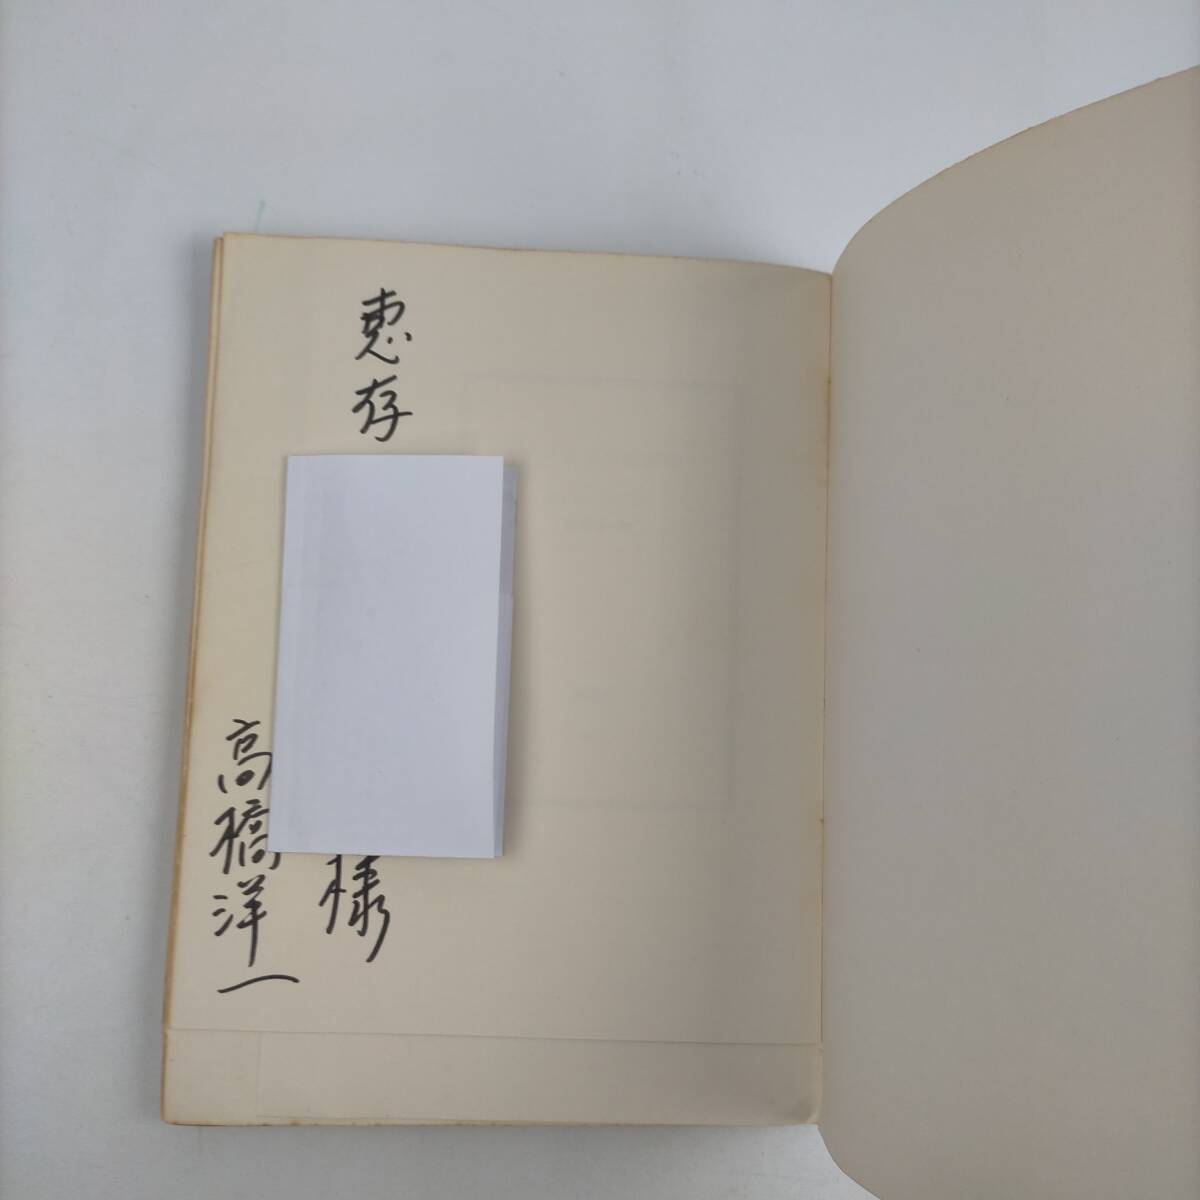 恵存
様
高橋洋一